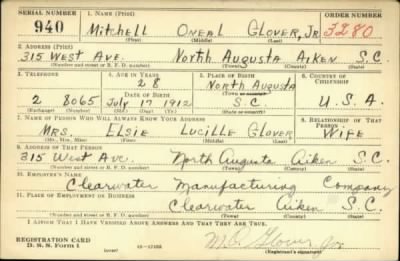 SERIAL NUMBER 1. NAME (Print) ORDER NUMBER
940 Mitchell Oneal Glover, Jr 3280
(First) (Middle) (Last)
2. ADDRESS (Print)
315 West Ave. North Augusta Aiken S.C.
(Number and street or R. F. D. number) (Town) (County) (State)
3. TELEPHONE 4. AGE IN YEARS 5. PLACE OF BIRTH 6. COUNTRY OF CITIZENSHIP
28 North Augusta
DATE OF BIRTH (Town or county)
2 8065 July 17 1912 S.C. U.S.A.
(Exchange) (Number) (Mo.) (Day) (Yr.) (State or country)
7. NAME OF PERSON WHO WILL ALWAYS KNOW YOUR ADDRESS 8. RELATIONSHIP OF THAT PERSON
Mrs. Elsie Lucille Glover Wife
(Mr., Mrs., Miss) (First) (Middle) (Last)
9. ADDRESS OF THAT PERSON
315 West Ave. North Augusta Aiken S.C.
(Number and street or R. F. D. number) (Town) (County) (State)
10. EMPLOYER'S NAME
Clearwater Manufacturing Company
11. PLACE OF EMPLOYMENT OR BUSINESS
Clearwater Aiken S.C.
(Number and street or R. F. D. number) (Town) (County) (State)
I AFFIRM THAT I HAVE VERIFIED ABOVE ANSWERS AND THAT THEY ARE TRUE.
REGISTRATION CARD
D. S. S. Form 1 M.O. Glover Jr.
(Registrant's signature)